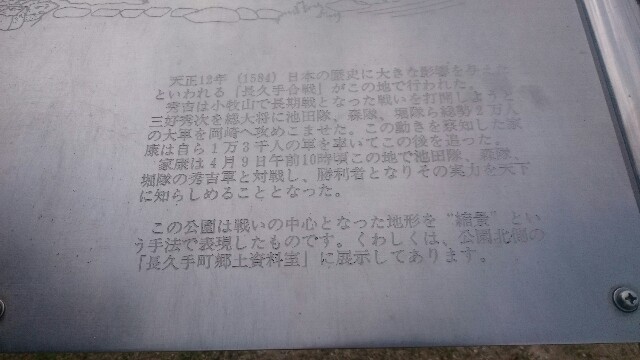 天正12年(1584)日本の歴史に大きな影響を
といわれる「長久手合戦」がこの地で行われた。
秀吉は小牧山で長期戦となった戦いを打開しようと
三好秀次を総大将に池田隊、森隊、堀隊ら総勢2万人
の大軍を岡崎へ攻めこませた。この動きを察知した家
康は自ら1万3千人の軍を率いてこの後を追った。
家康は4月9日午前10時頃この地で池田隊、森隊、
堀隊の秀吉軍と対戦し、勝利者となりその実力を天下
に知らしめることとなった。
この公園は戦いの中心となった地形を“縮景”とい
う手法で表現したものです。くわしくは、公園北側の
「長久手町郷土資料室」に展示してあります。